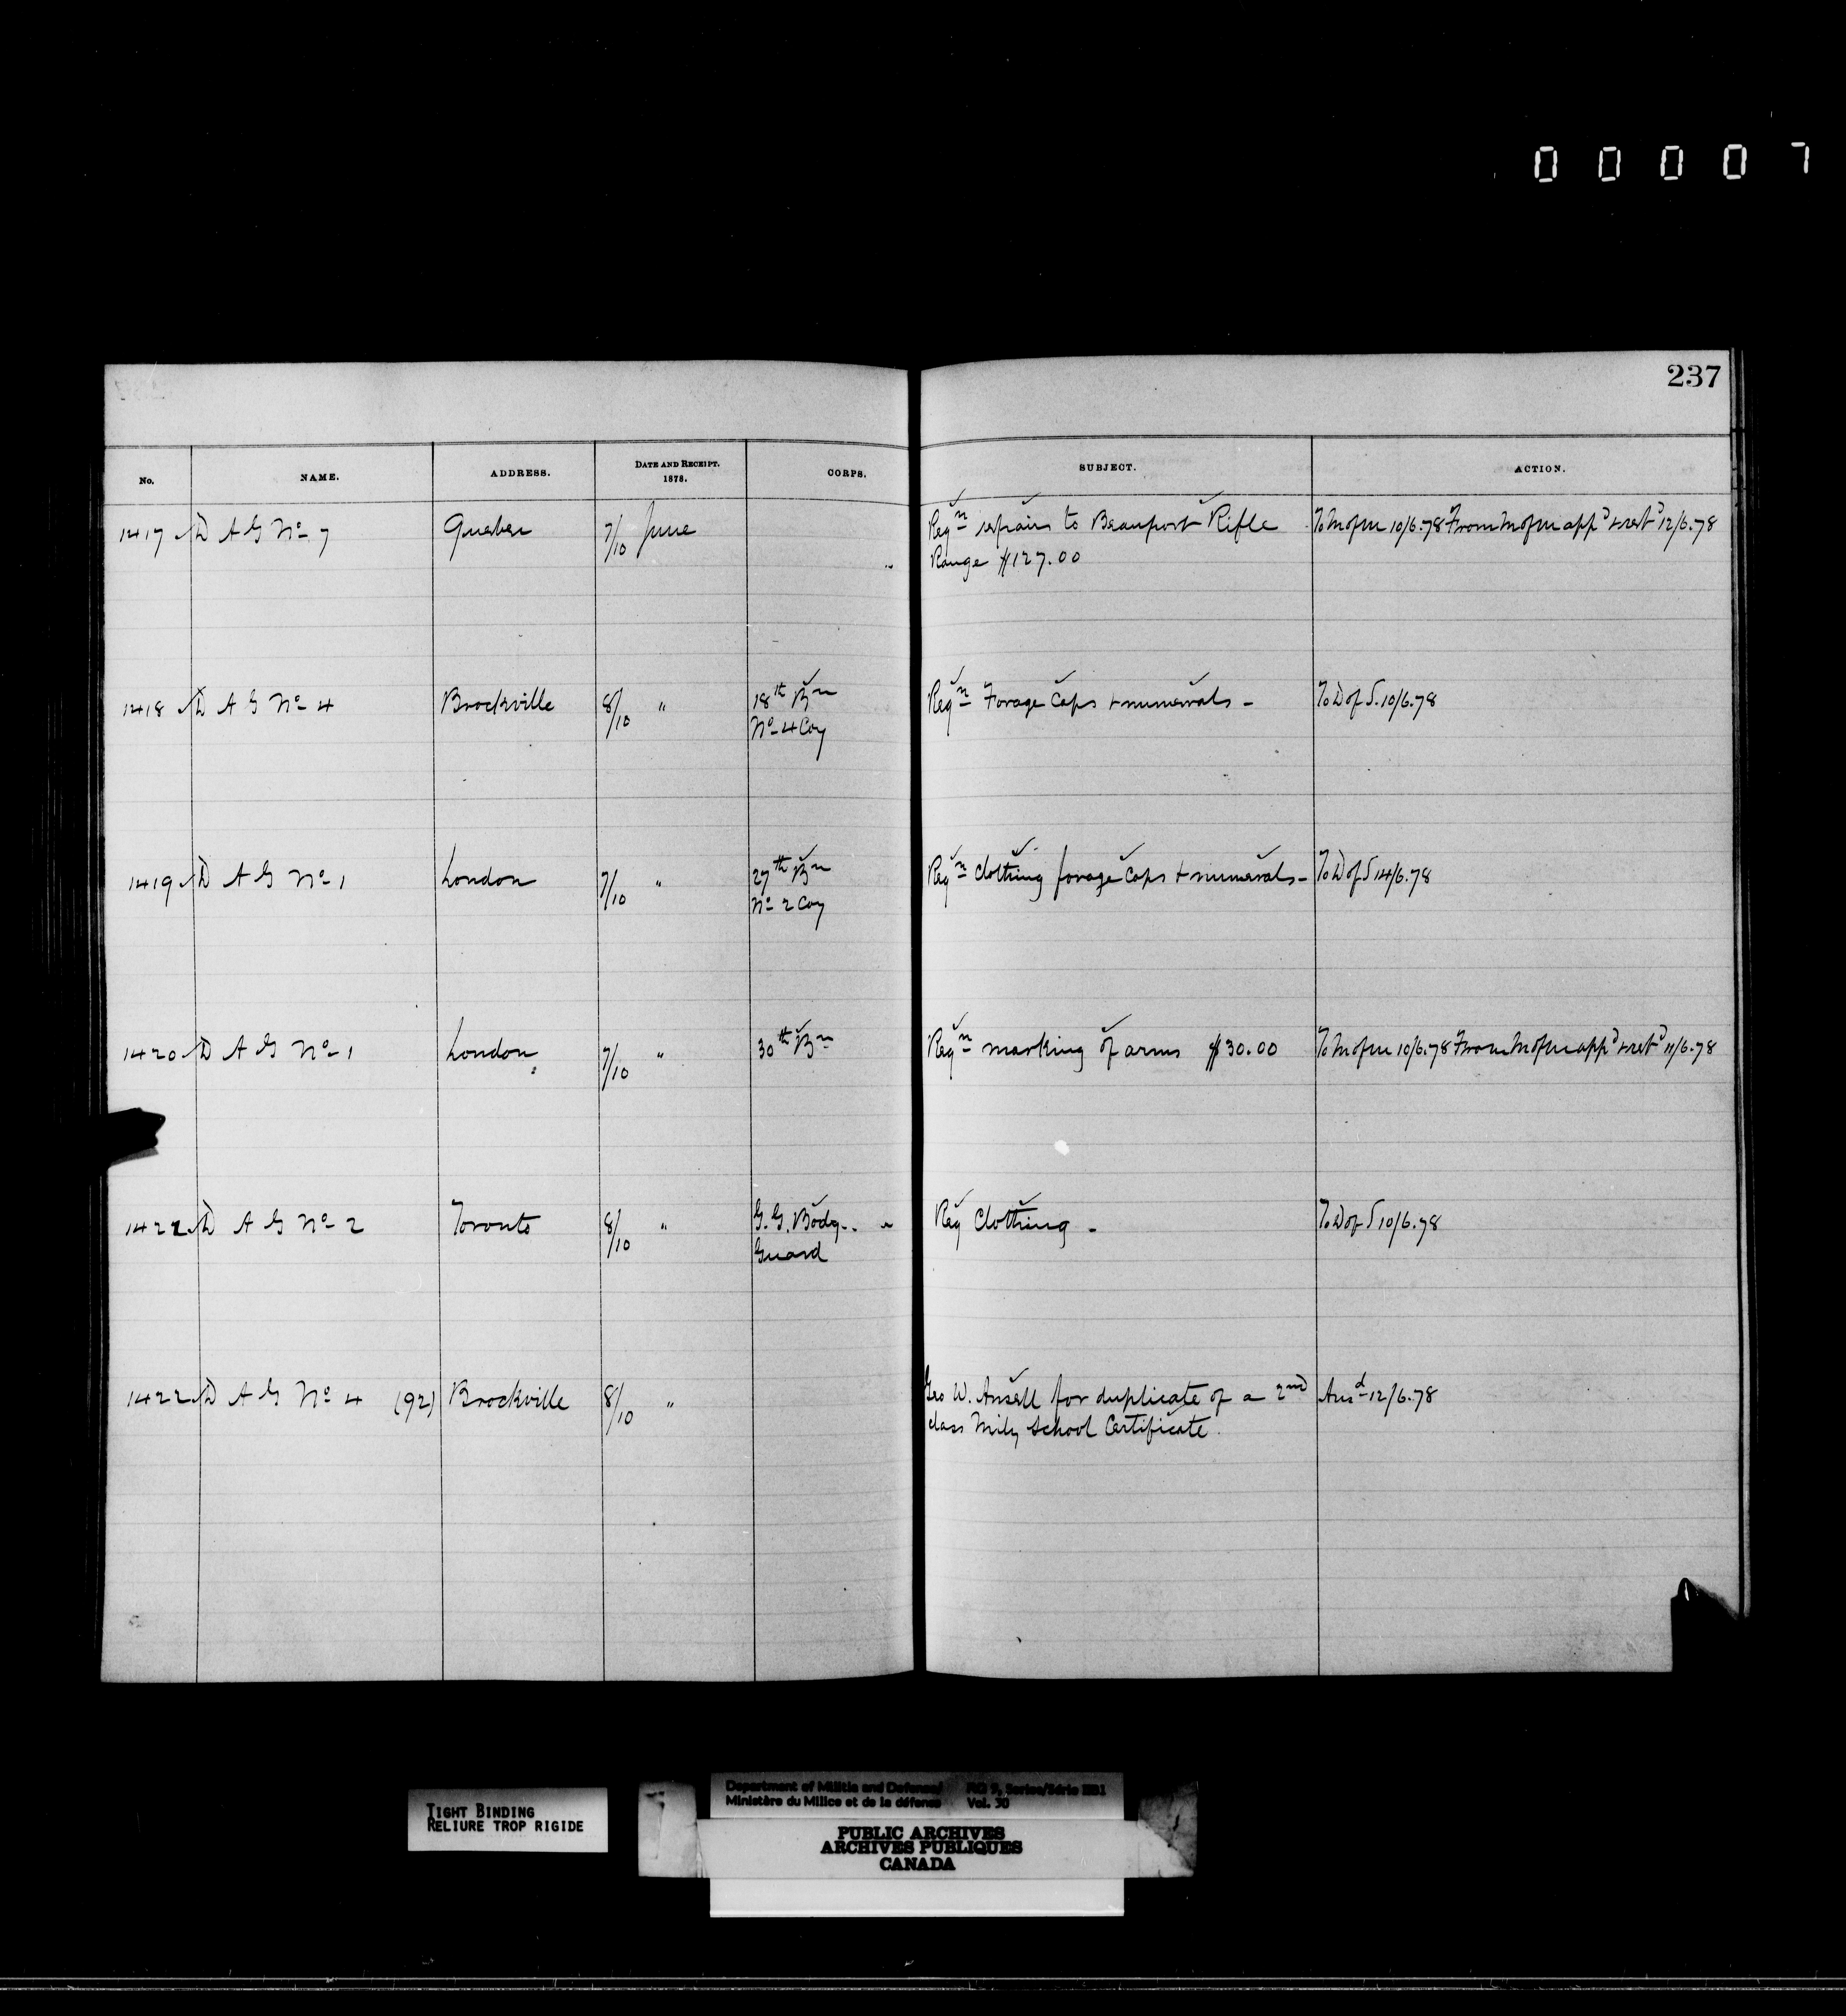 0 0 0 0 7
237
No. NAME. ADDRESS. DATE AND RECEIPT. 1878. CORPS. SUBJECT. ACTION.
1417 D A G No 7 Quebec 7/10 June Reqn repairs to Beauport Rifle To M of M 10/6.78 From M of M appd & retd 12/6.78
" Range $127.00
1418 D A G No 4 Brockville 8/10 " 18th Bn Reqn Forage Caps & numerals - To D of S. 10/6.78
No 4 Coy
1419 D A G No 1 London 7/10 " 27th Bn Reqn Clothing forage Caps & numerals - To D of S 14/6.78
No 2 Coy
1420 D A G No 1 London 7/10 " 30th Bn Reqn marking of arms $30.00 To M of M 10/6.78 From M of M appd & retd 11/6.78
1422 D A G No 2 Toronto 8/10 " G. G. Body- Req Clothing - To D of S 10/6.78
Guard
1422 D A G No 4 (92) Brockville 8/10 " Geo W. Ansell for duplicate of a 2nd Ansd 12/6.78
class Mily School Certificate.
TIGHT BINDING
RELIURE TROP RIGIDE
Department of Militia and Defence/ RG 9, Series/Série IIB1
Ministère du Milice et de la défense Vol. 30
PUBLIC ARCHIVES
ARCHIVES PUBLIQUES
CANADA